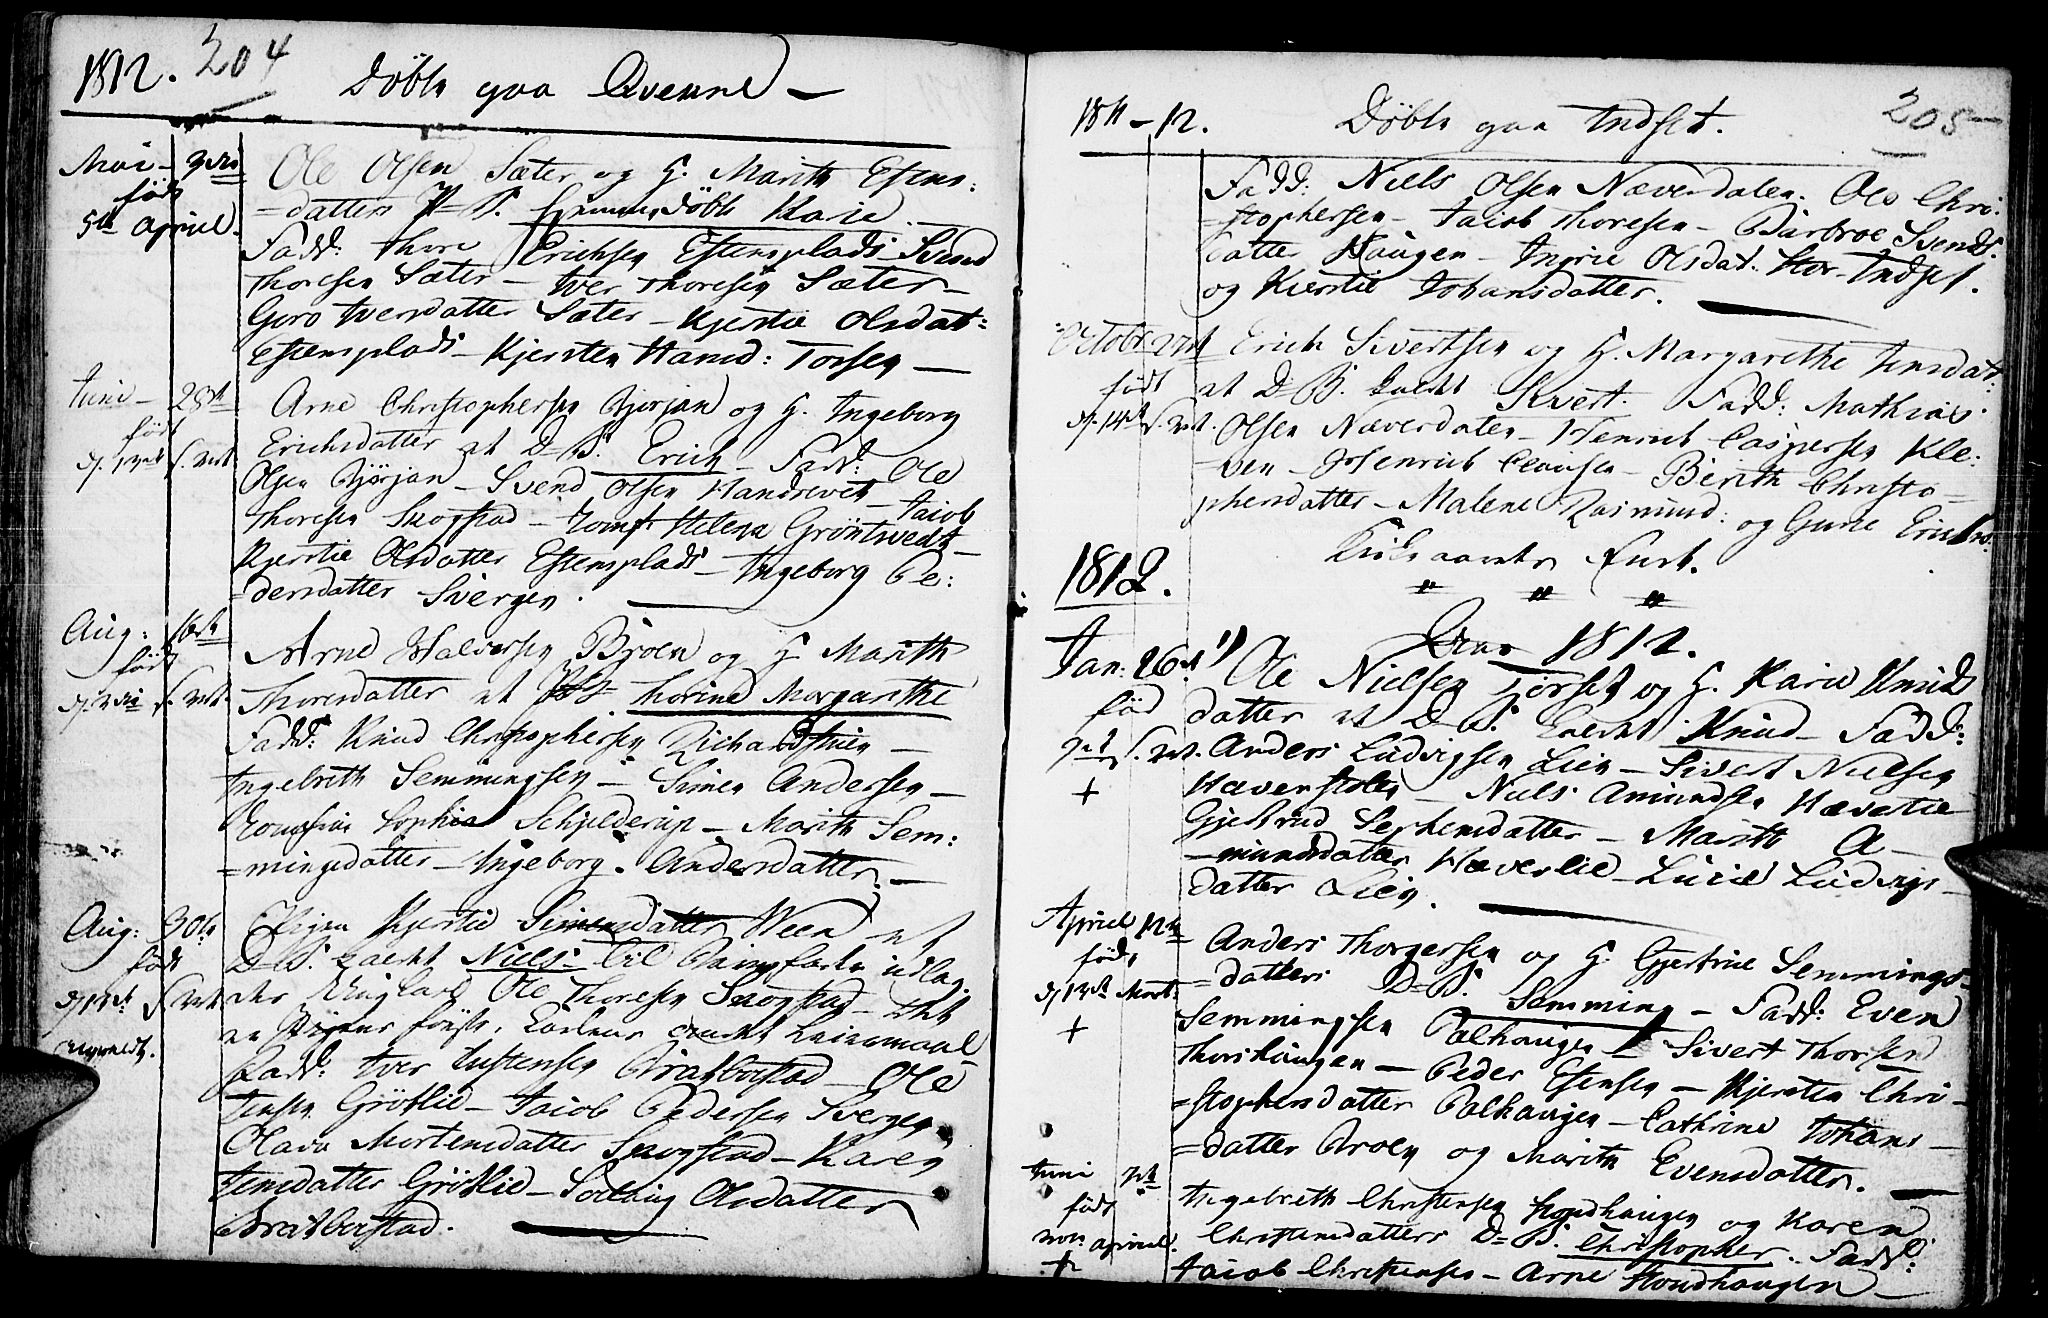 1812. 204
Döbte paa Qvenne —
Mai — 3die
født
5te Apriel.
Ole Olsen Sæter og H. Marith Estens:
=datters P. B. hiemmedöbt Karie. —
Fadd: Thore Erichsen Estensplads — Svend
Thoresen Sæter — Iver Thoresen Sæter —
Guro Iversdatter Sæter — Kjerstie Olsdat=
Estensplads — Kjersten Hansd: Torsen —
Juni — 28de
født
d. s. Mt.
Arne Christophersen Bjørjan og H. Ingeborg
Erichsdatter et D. B. Erich — Fadd: Ole
Olsen Bjørjan — Svend Olsen
Thoresen Skogstad — Jomfr Helena Grøntvedt — Jacob
Kjerstie Olsdatter Estensplads — Ingeborg Pe:
=dersdatter Svergen.
Aug: 16de
født
d. s. Mt.
Arne Halvorsen Bjøen og H. Marith
Thoresdatter et Thorine Margarethe
Fadd: Knud Christophersen —
Ingebreth Semmingsen — Simen Andersen —
Jomfrue Sophia Schjelderup — Marith Sem:
=mingsdatter — Ingeborg Andersdatter. —
Aug: 30te
født
d. s. Mt.
Pigen Kjerstie Simensdatter Ween et
D. B. kaldt Niels til Barnefader udlag
der Ungkarl Ole Thoresen Skogstad — Det
er Pigens første, Karlens andet Leiermaal
Fadd: Iver Justensen Bratberstad — Ole
Jensen Grøtlie — Jacob Pedersen Svergen
Olava Mortensdatter Skogstad — Karen
Jensdatter Grøtlie — Olsdatter
Bratberstad.
1811 — 12. Döbte paa Indset. 205
Fadd: Niels Olsen Næverdalen. Ole Chri:
=stophersen — Jacob Thoresen — Barbroe Svends:
datter Haugen — Ingrie Olsdat: Stor-Indset.
og Kierstie Johansdatter.
October
født
d. 14de s. Mt.
Erich Sivertsen og H. Margarethe Jensdat:
et D. B. kaldt Sivert. Fadd: Mathias
Olsen Næverdalen — Henrik Caspersen Kle:
=ven — Henrich Clausen — Berith Christo —
phersdatter — Malene Rasmusd: og Gurie Erichs:
Kirkeaarets Ende.
" " "
1812.
Anno 1812.
Jan: 26de
fød
s. Mt.
+
1) Ole Nielsen Torset og H. Karie Knuds
datter et D. B. kaldt Knud — Fadd:
Anders Ludvigsen Lien — Sivert Nielsen
Næverstolen — Niels Amundsen Hæverlie
Gjertrud Stephensdatter — Marith A —
=mundsdatter Hæverlie — Lucie Ludvigs —
datter Lien.
Apriel 12te
fød
d. 13de Mart:
+
Anders Thorgersen og H. Gjertrue Semmings=
=datters D. B. Semming — Fadd: Even
Semmingsen Palhaugen — Sivert Thorsen
Thorshaugen — Peder Estensen — Kjersten Chri —
=stophersdatter Palhaugen — Cathrine Johans —
=datter Broen og Marith Evensdatter. —
Juni 7de
født
Apriel.
+
Ingebreth Christensen Hondhaugen og Karen
Christensdatters D. B. Christopher. Fadd:
Jacob Christensen — Arne Hondhaugen —